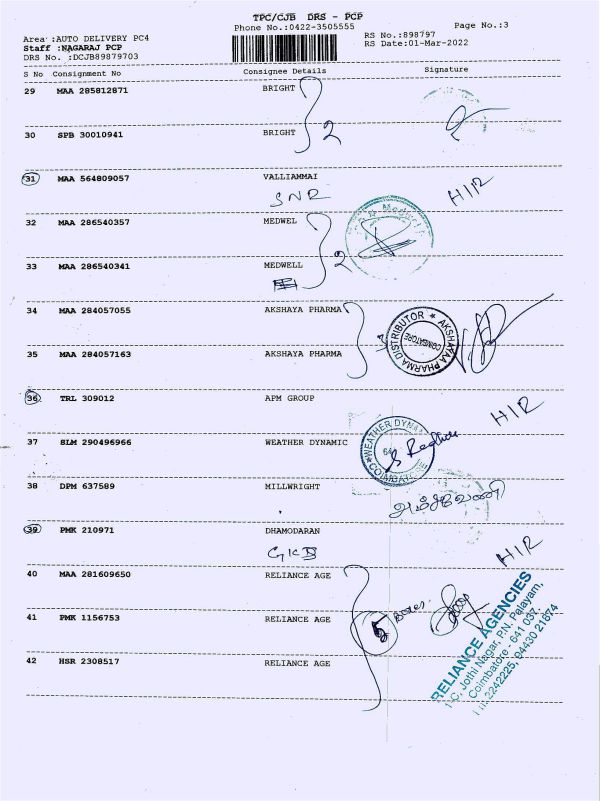 TPC/CJB DRS - PCP
Phone No.:0422-3505555
Page No.:3
Area :AUTO DELIVERY PC4
RS No.:898797
Staff :NAGARAJ PCP
RS Date:01-Mar-2022
DRS No. :DCJB89879703
S No Consignment No Consignee Details Signature
29 MAA 285812871 BRIGHT
2
30 SPB 30010941 BRIGHT
31 MAA 564809057 VALLIAMMAI
SNR HIR
32 MAA 286540357 MEDWEL
2
33 MAA 286540341 MEDWELL
34 MAA 284057055 AKSHAYA PHARMA
AKSHAYAA PHARMA DISTRIBUTOR
COIMBATORE
35 MAA 284057163 AKSHAYA PHARMA
36 TRL 309012 APM GROUP HIR
37 SLM 290496966 WEATHER DYNAMIC
WEATHER DYNA
COIMBAT
38 DPM 637589 MILLWRIGHT
39 PMK 210971 DHAMODARAN
HIR
40 MAA 281609650 RELIANCE AGE
5 Boxes
41 PMK 1156753 RELIANCE AGE
42 HSR 2308517 RELIANCE AGE
RELIANCE AGENCIES
Jothi Nagar, P.N. Palayam,
Coimbatore - 641 037.
2242225, 94430 21674